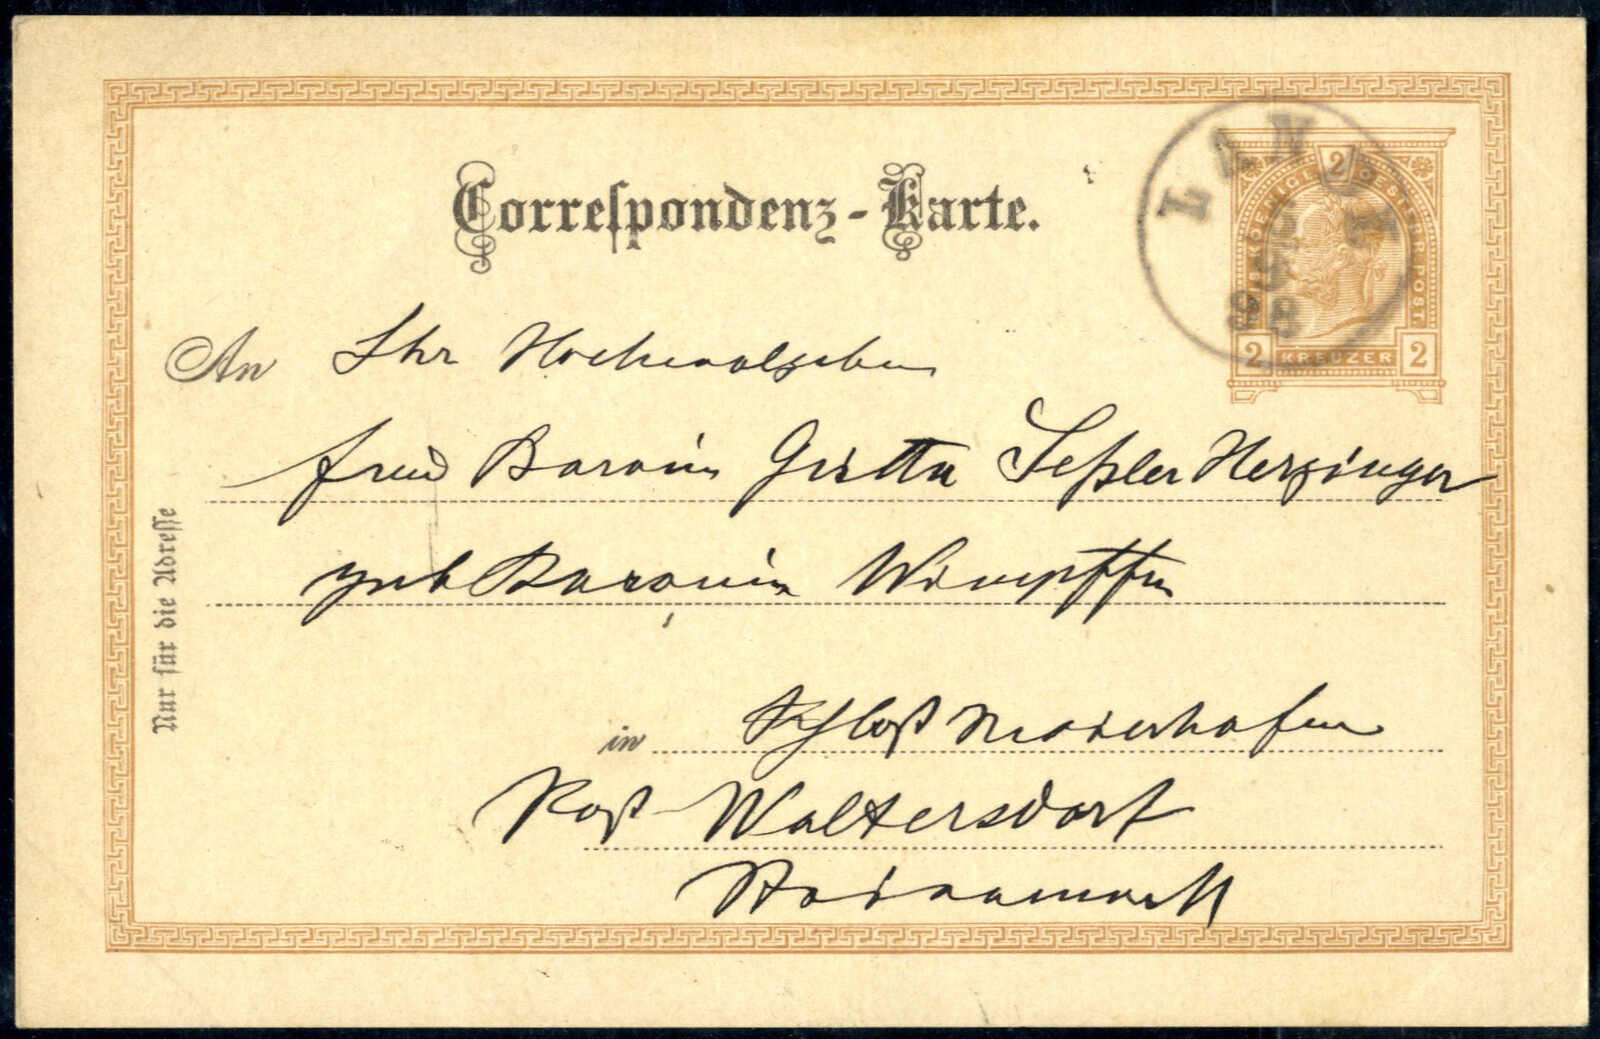 Correspondenz-Karte.
2
KOENIGL. OESTERR. POST
2 KREUZER 2
An Ihr Hochwolgeboren
Frau Baronin Gritta Seßler Herzinger
geb Baronin Wimpffen
Nur für die Adresse
in Schloß Maierhofen
Post Waltersdorf
Steiermark